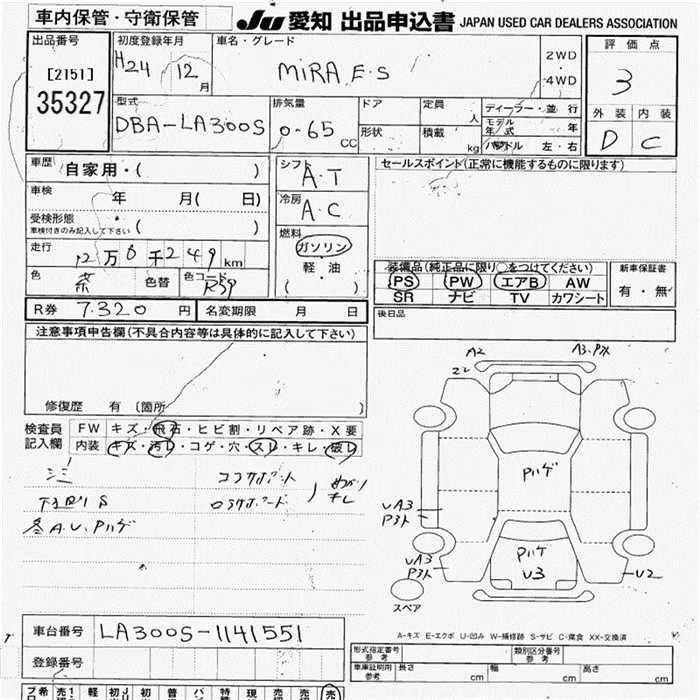 車内保管・守衛保管
JU 愛知 出品申込書 JAPAN USED CAR DEALERS ASSOCIATION
出品番号
[2151]
35327
初度登録年月
H24 12月
車名・グレード
MIRA E・S
2WD
・
4WD
評価点
3
外装 内装
D C
型式
DBA-LA300S
排気量
0-65 CC
ドア
形状
定員 人
積載 kg
ディーラー・並行
モデル年式 年
ハンドル 左・右
車歴 自家用・( )
車検 年 月( 日)
受検形態
車検付きのみ記入して下さい ( )
走行 12万6千249km
色 茶 色替 色コード R59
シフト
A・T
冷房
A・C
燃料
ガソリン
軽・油
( )
セールスポイント(正常に機能するものに限ります)
装備品(純正品に限り○をつけてください)
PS PW エアB AW
SR ナビ TV カワシート
新車保証書
有・無
R券 7.320 円 名変期限 月 日
後日品
注意事項申告欄(不具合内容等は具体的に記入して下さい)
修復歴 有 〔箇所
検査員記入欄
FW キズ・飛石・ヒビ割・リペア跡・X要
内装 キズ・汚レ・コゲ・穴・スレ・キレ・破レ
A2
A3.PX
Pハゲ
UA3
P3ト
UA3
P3ト
Pハゲ
U3
U2
スペア
A-キズ E-エクボ U-凹み W-補修跡 S-サビ C-腐食 XX-交換済
車台番号 LA300S-1141551
登録番号
形式指定番号 参考
類別区分番号 参考
車庫証明用 参考 長さ cm 幅 cm 高さ cm